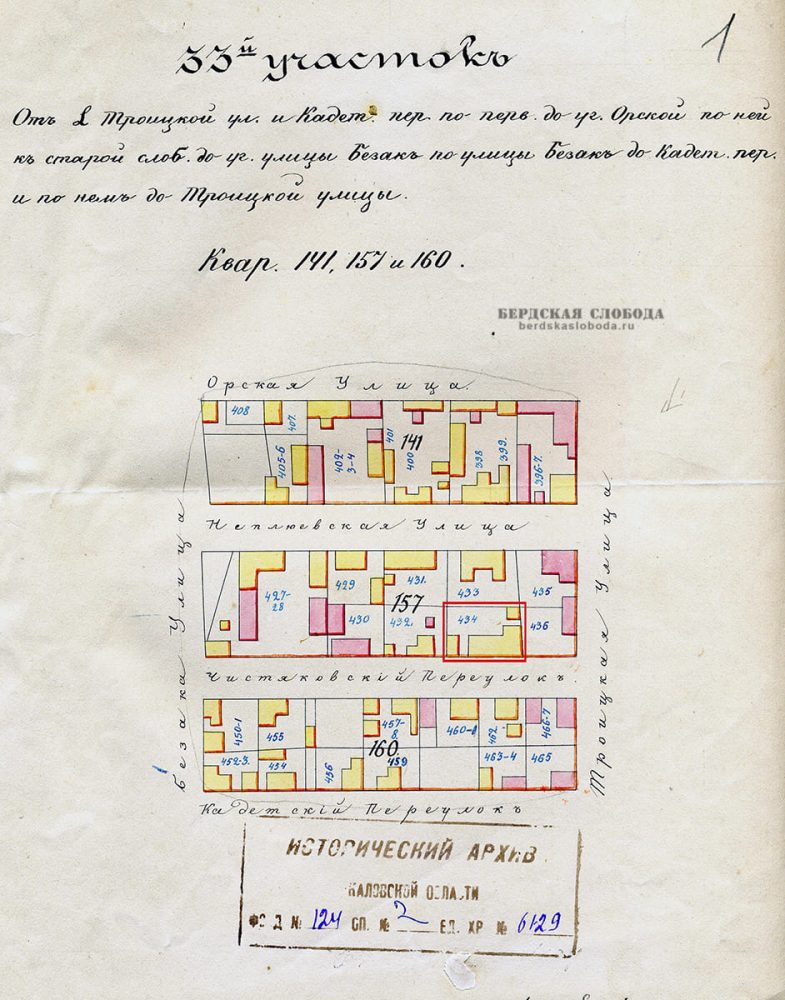 1
33й участокъ
Отъ L Троицкой ул. и Кадет. пер. по перв. до уг. Орской по ней
къ старой слоб. до уг. улицы Безакъ по улицы Безакъ до Кадет. пер.
и по немъ до Троицкой улицы.
Квар. 141, 157 и 160.
БЕРДСКАЯ СЛОБОДА
berdskasloboda.ru
Орская Улица.
408
407.
405-6
402-3-4
401
400
141
398
399.
396-7.
Неплюевская Улица
Безака Улица
Троицкая Улица
427-28
429
430
431.
157
432.
433
434
435
436
Чистяковскій Переулокъ.
450-1
455
452-3.
454
456
457-8.
160.
459
460-1
462
463-4
465
466-7
Кадетскій Переулокъ
ИСТОРИЧЕСКИЙ АРХИВ
ОБЛАСТИ
ФОНД № 124 ОП. № 2 ЕД. ХР № 6129